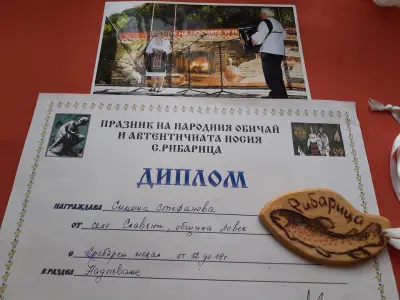 НА НОСИЯТА И
ПРАЗНИК НА НАРОДНИЯ ОБИЧАЙ
И АВТЕНТИЧНАТА НОСИЯ
С.РИБАРИЦА
ДИПЛОМ
НАГРАЖДАВА Симона Стефанова
ОТ село Славяни, община Ловеч
С Сребърен медал от 12 до 18г
В РАЗДЕЛ Надпяване
Рибарица